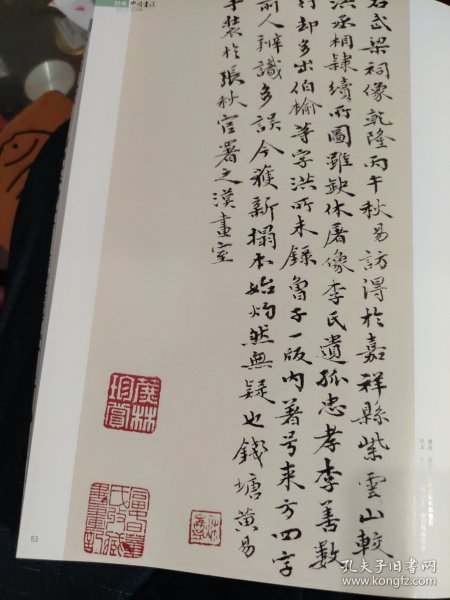 经典 中国书法
石武梁祠像乾隆丙午秋易訪得於嘉祥縣紫雲山較
洪丞相隸續所圖雖缺休屠像李氏遺孤忠孝李善數
行却多出伯榆等字洪所未錄魯子一版内著号来方四字
前人辨識多誤今獲新搨本始灼然無疑也錢塘黃易
手裝於張秋官署之漢畫室
蔗林珍賞
53
孔夫子旧书网